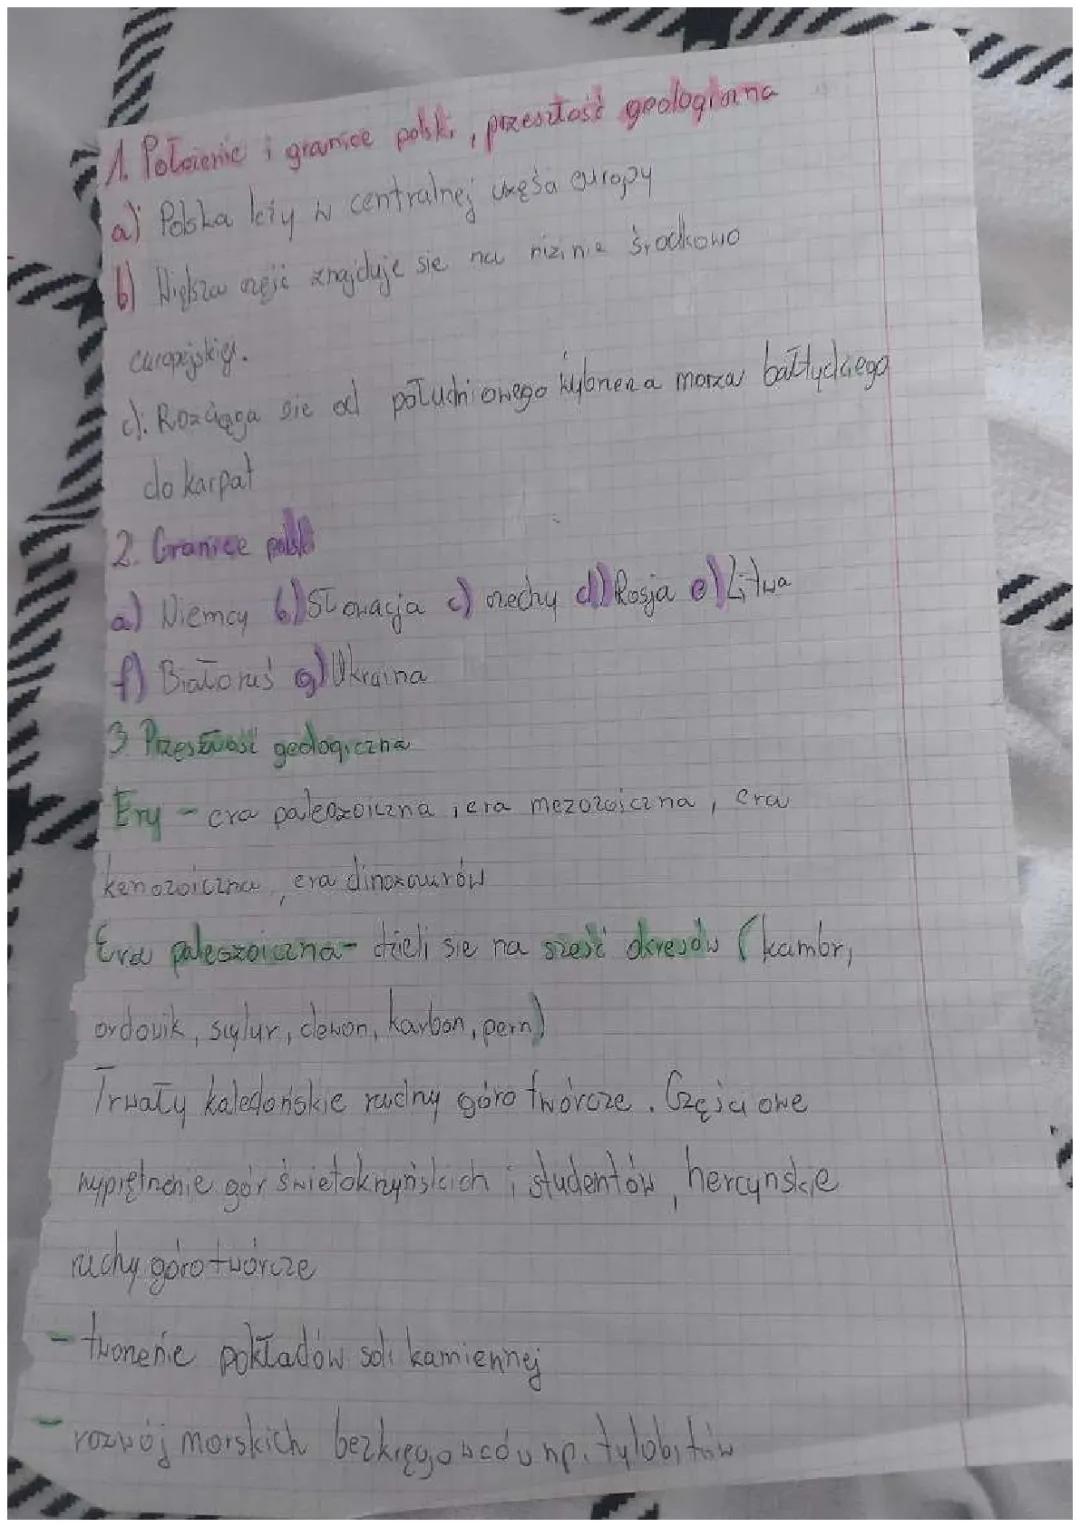 1. Położenie i granice polski, przeszłość geologiczna
a) Polska leży w centralnej części europy
b) Większa część znajduje się na nizinie środkowo
europejskiej.
c): Rozciąga się od południowego wybrzeża morza bałtyckiego
do karpat
2. Granice polski
a) Niemcy b) Słowacja c) czechy d) Rosja e) Litwa
f) Białoruś g) Ukraina
3. Przeszłość geologiczna
Ery - era paleozoiczna, era mezozoiczna, era
kenozoiczna, era dinozaurów
Era paleozoiczna - dzieli się na sześć okresów (kambr,
ordowik, sylur, dewon, karbon, perm)
Trwały kaledońskie ruchy górotwórcze. Częściowe
wypiętrzenie gór świętokrzyskich i studentów, hercyńskie
ruchy górotwórcze
- tworzenie pokładów soli kamiennej
- rozwój morskich bezkręgowców np. tylobitów